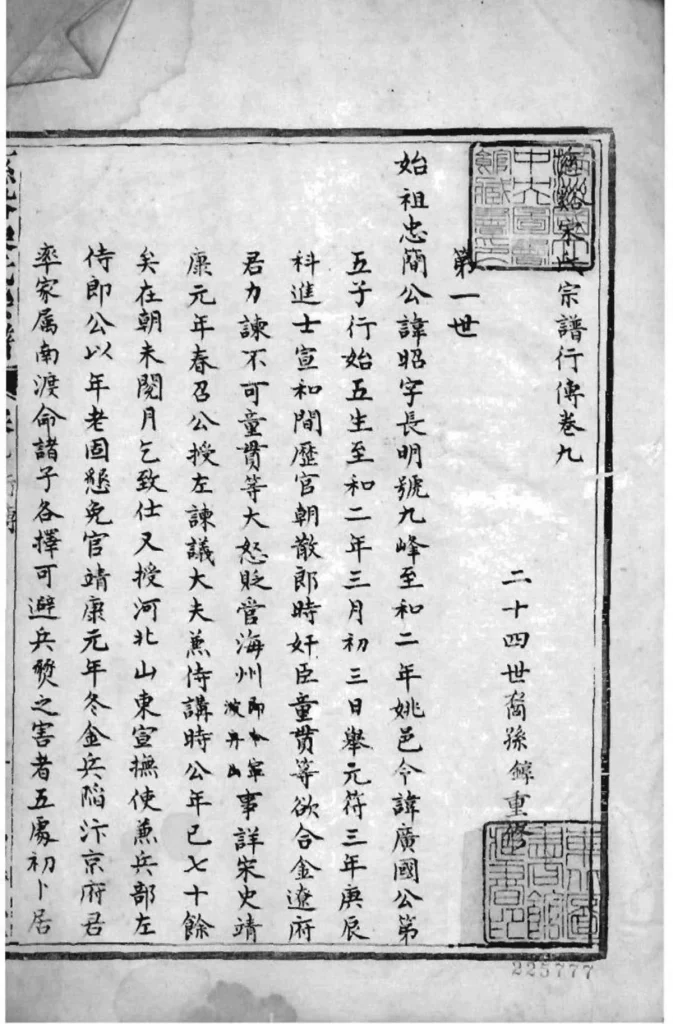 海谿宋氏宗譜行傳卷九
二十四世裔孫鏵重修
第一世
始祖忠簡公諱昭字長明號九峰至和二年姚邑令諱廣國公第
五子行始五生至和二年三月初三日舉元符三年庚辰
科進士宣和間歷官朝散郎時奸臣童貫等欲合金遼府
君力諫不可童貫等大怒貶官海州即今寧波舟山事詳宋史靖
康元年春召公授左諫議大夫蕪侍講時公年已七十餘
矣在朝未閱月乞致仕又授河北山東宣撫使蕪兵部左
侍郎公以年老固懇免官靖康元年冬金兵陷汴京府君
率家属南渡命諸子各擇可避兵燹之害者五處初卜居
225777